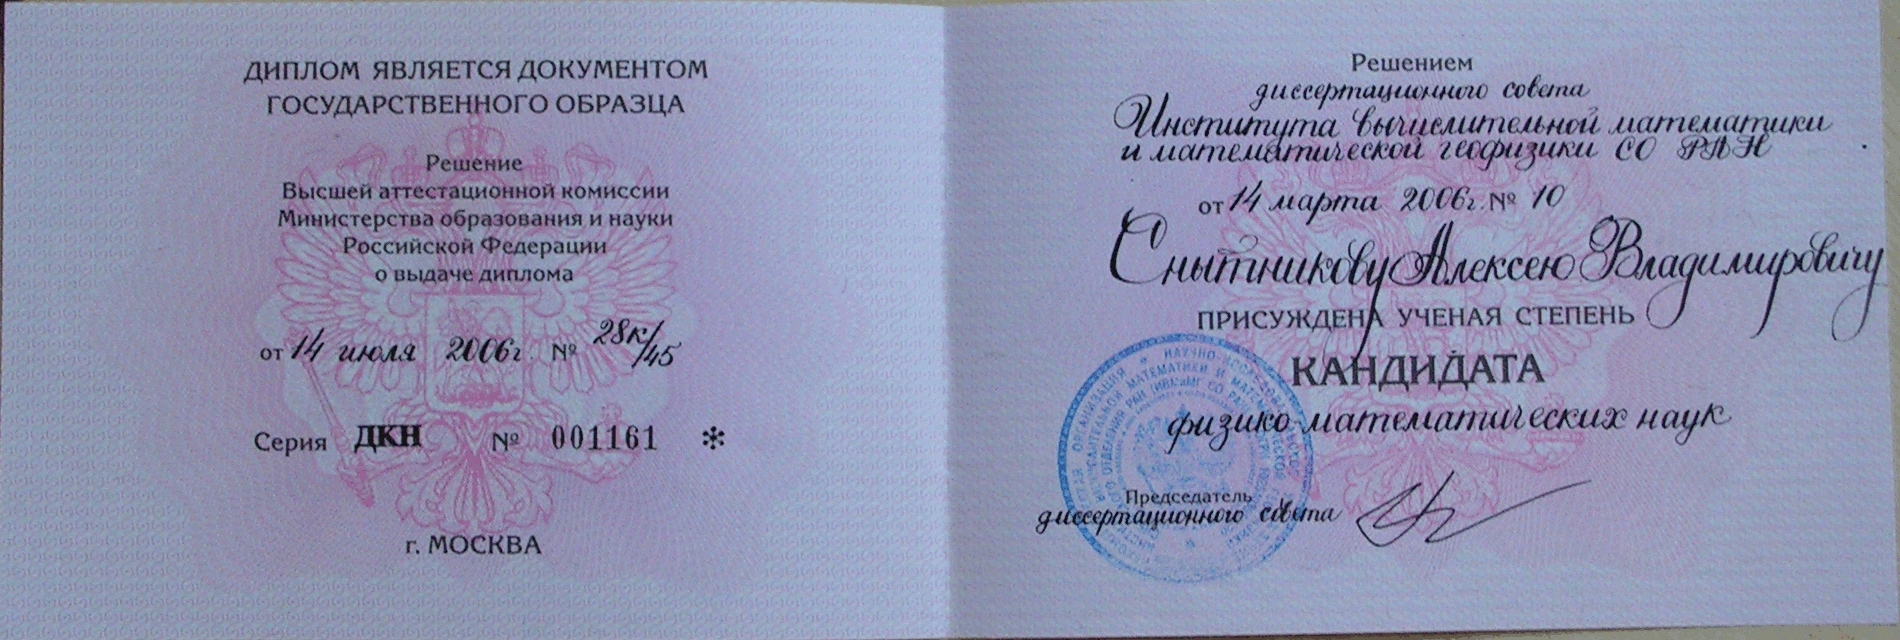 ДИПЛОМ ЯВЛЯЕТСЯ ДОКУМЕНТОМ
ГОСУДАРСТВЕННОГО ОБРАЗЦА
Решение
Высшей аттестационной комиссии
Министерства образования и науки
Российской Федерации
о выдаче диплома
от 14 июля 2006г. № 28к/45
Серия ДКН № 001161 *
г. МОСКВА
Решением
диссертационного совета
Института вычислительной математики
и математической геофизики СО РАН
от 14 марта 2006г. № 10
Снытникову Алексею Владимировичу
ПРИСУЖДЕНА УЧЕНАЯ СТЕПЕНЬ
КАНДИДАТА
физико-математических наук
Председатель
диссертационного совета